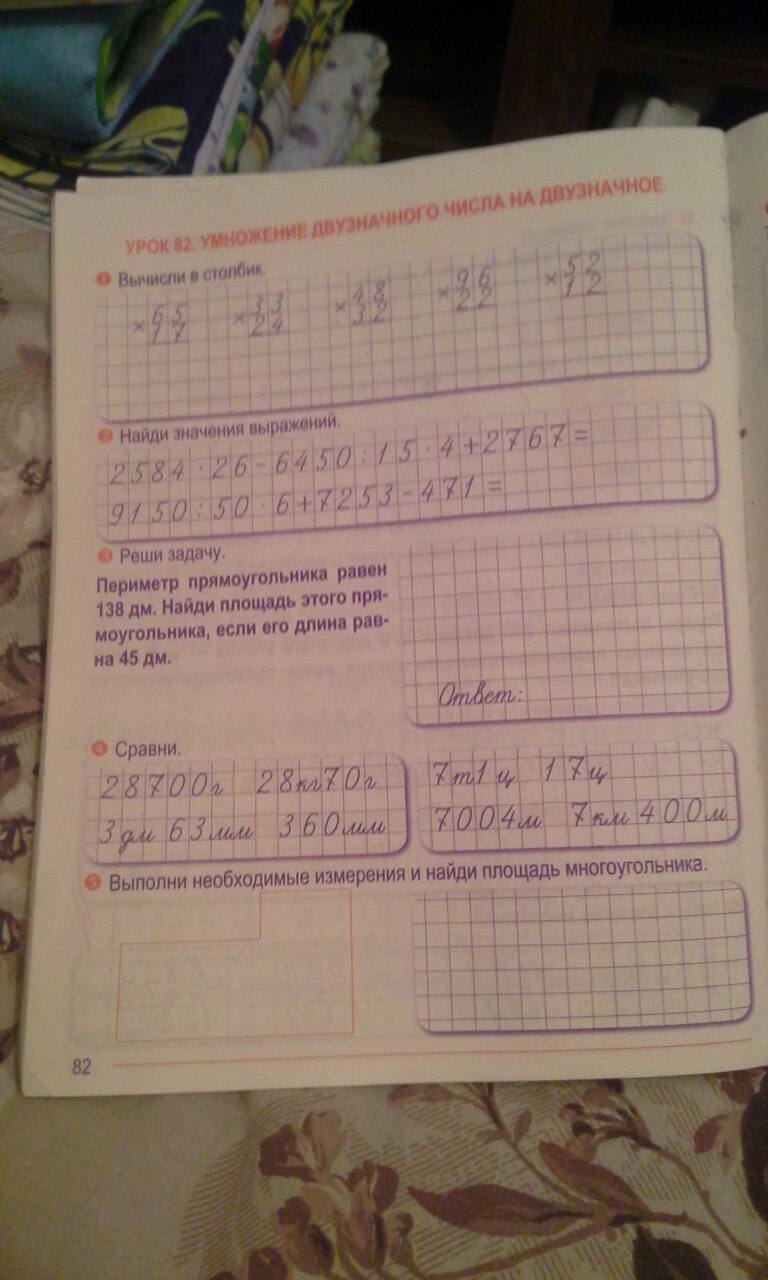 УРОК 82. УМНОЖЕНИЕ ДВУЗНАЧНОГО ЧИСЛА НА ДВУЗНАЧНОЕ
1 Вычисли в столбик.
× 65 × 33 × 48 × 96 × 52
17 24 32 22 12
2 Найди значения выражений.
2584 · 26 - 6450 : 15 · 4 + 2767 =
9150 : 50 · 6 + 7253 - 471 =
3 Реши задачу.
Периметр прямоугольника равен
138 дм. Найди площадь этого пря-
моугольника, если его длина рав-
на 45 дм.
Ответ:
4 Сравни.
28700г 28кг70г 7т1ц 17ц
3дм 63мм 360мм 7004м 7км 400м
5 Выполни необходимые измерения и найди площадь многоугольника.
82